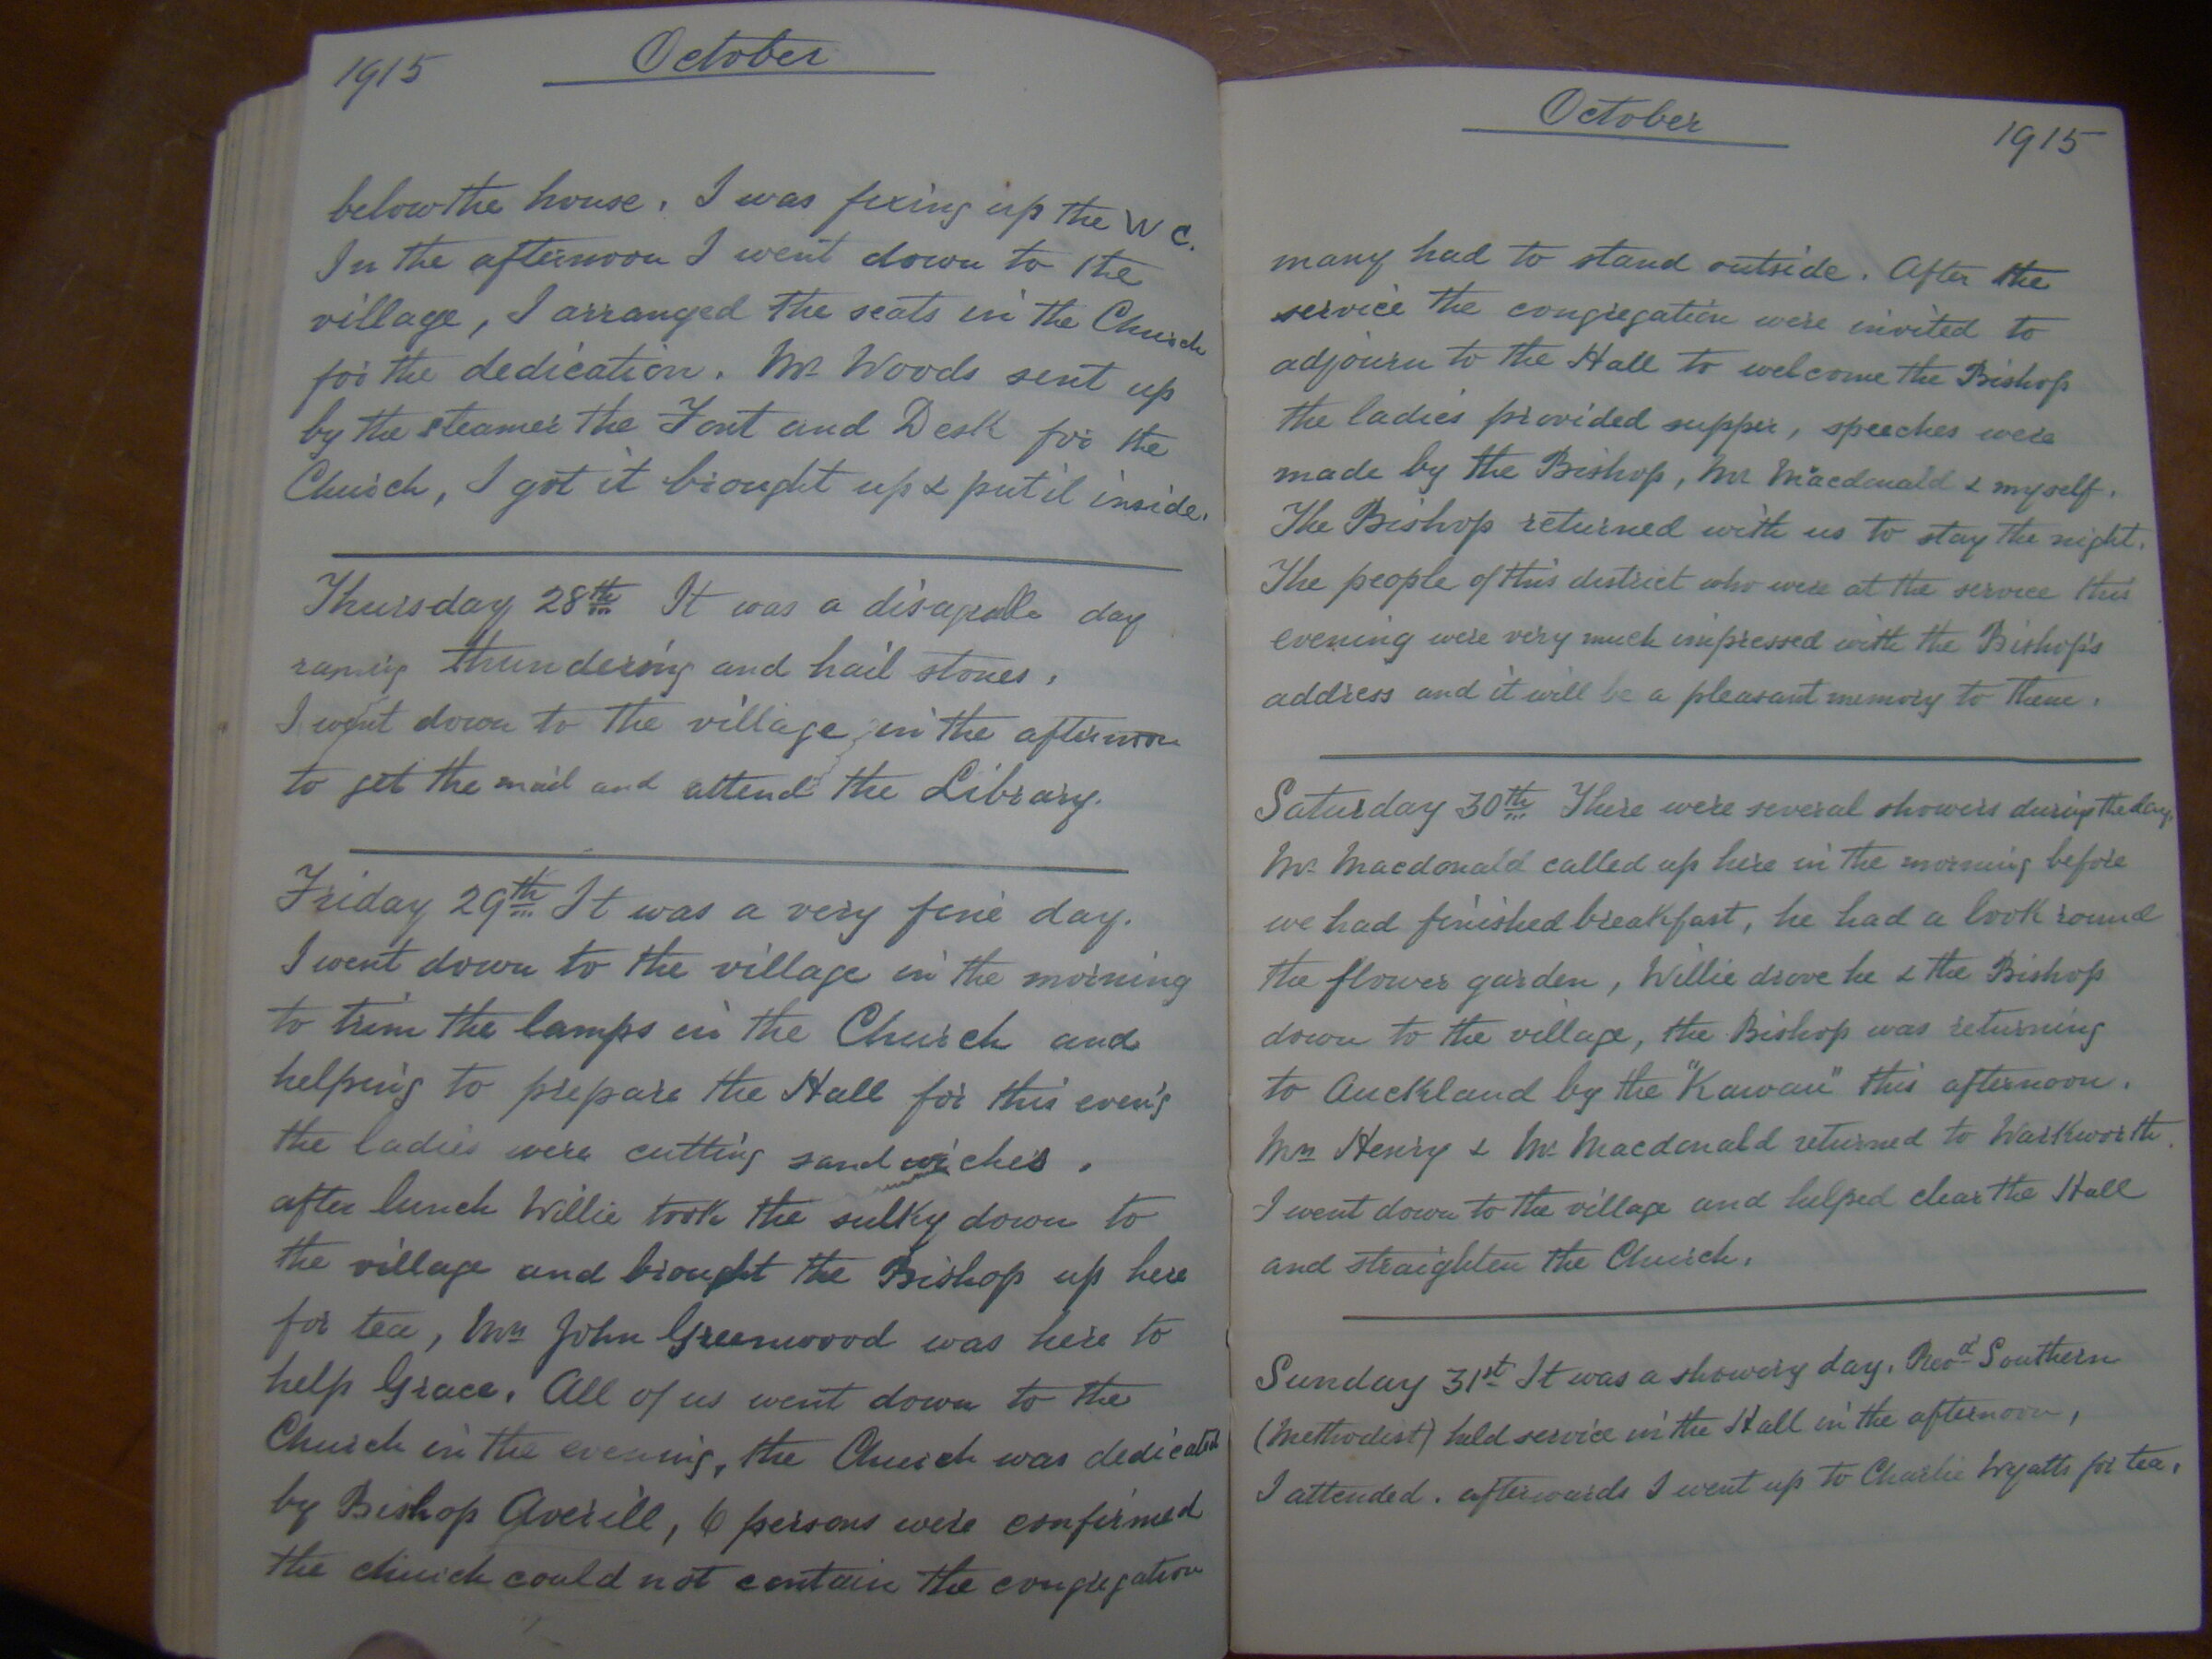 1915 October
below the house. I was fixing up the W C.
In the afternoon I went down to the
village, I arranged the seats in the Church
for the dedication. Mr Woods sent up
by the steamer the Font and Desk for the
Church, I got it brought up & put it inside.
Thursday 28th It was a day
thundering and hail stones.
I went down to the village in the afternoon
to get the mail and attend the Library.
Friday 29th It was a very fine day.
I went down to the village in the morning
to trim the lamps in the Church and
helping to prepare the Hall for this even'g
the ladies were cutting sandwiches.
after lunch Willie took the sulky down to
the village and brought the Bishop up here
for tea, Mrs John Greenwood was here to
help Grace. All of us went down to the
Church in the evening, the Church was dedicated
by Bishop Averill, 6 persons were confirmed
the church could not contain the congregation
October 1915
many had to stand outside. After the
service the congregation were invited to
adjourn to the Hall to welcome the Bishop
the ladies provided supper, speeches were
made by the Bishop, Mr Macdonald & myself.
The Bishop returned with us to stay the night.
The people of this district who were at the service this
evening were very much impressed with the Bishop's
address and it will be a pleasant memory to them.
Saturday 30th There were several showers during the day,
Mr Macdonald called up here in the morning before
we had finished breakfast, he had a look round
the flower garden, Willie drove he & the Bishop
down to the village, the Bishop was returning
to Auckland by the "Kawau" this afternoon.
Mrs Henry & Mr Macdonald returned to Warkworth.
I went down to the village and helped clear the Hall
and straighten the Church.
Sunday 31st It was a showery day. Revd Southern
(Methodist) held service in the Hall in the afternoon,
I attended. afterwards I went up to Charlie Wyatts for tea.